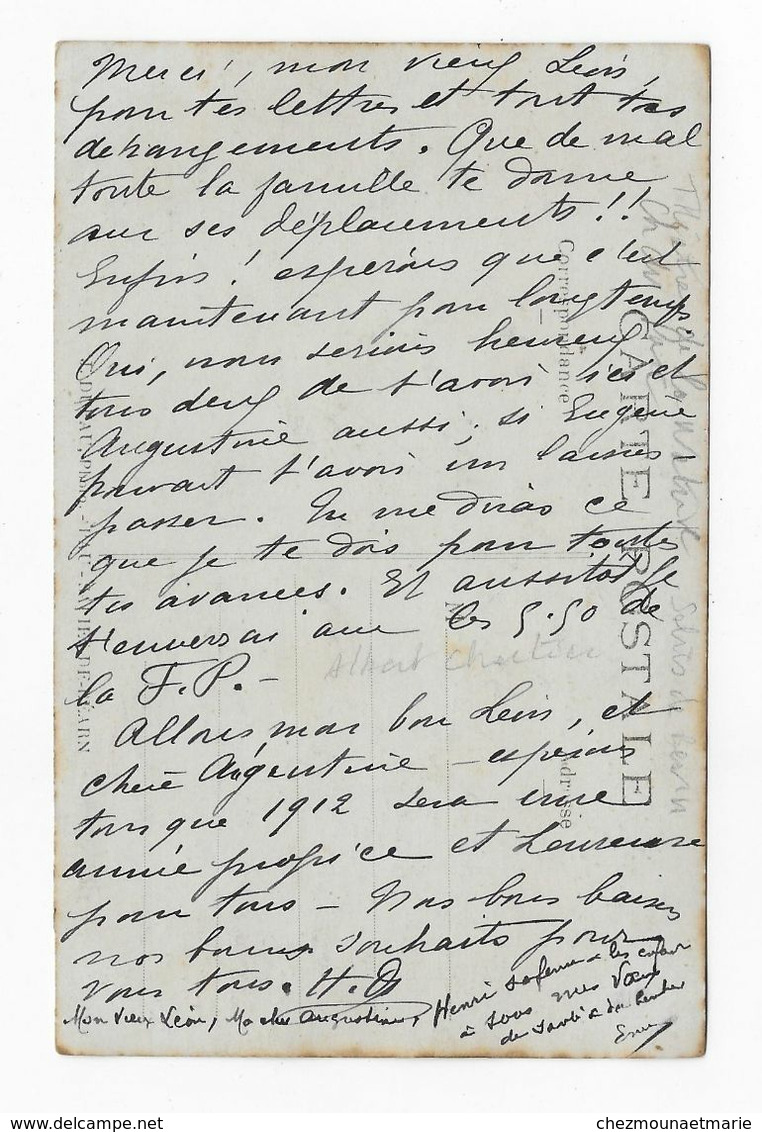 Merci, mon vieux Léon,
pour tes lettres et tout tes
dérangements. Que de mal
toute la famille te donne
avec ses déplacements !!
Enfin ! espérons que c'est
maintenant pour longtemps.
Oui, nous serions heureux
tous deux de t'avoir ici et
Augustine aussi, si Eugène
pouvait t'avoir un laissez-
passer. Tu me diras ce
que je te dois pour toutes
tes avances. Et aussitôt je
t'enverrai avec les 5.50 de
la F.P. -
Allons mon bon Léon, et
chère Augustine - espérons
tous que 1912 sera une
année propice et heureuse
pour tous - Nos bons baisers
nos bons souhaits pour
vous tous. H.
Mon vieux Léon, Ma chère Augustine,
Henri sa femme & les
à tous mes Vœux
de santé & de
CARTE POSTALE
Correspondance
Adresse
Albert Chartier
chezmounaetmarie